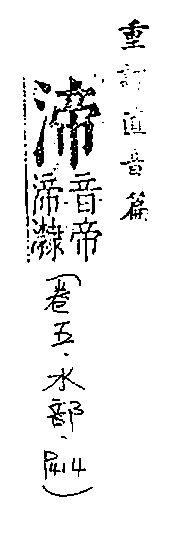 重訂直音篇
渧
音帝
渧隸
(卷五·水部·P414)